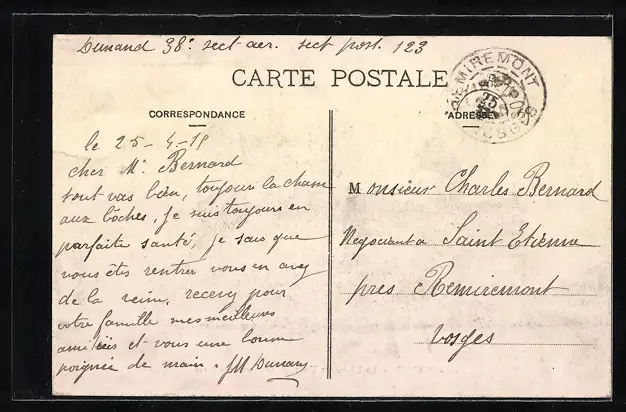 Dunand 38e sect-aer. sect post. 123
CARTE POSTALE
CORRESPONDANCE
ADRESSE
REMIREMONT
25
VOSGES
le 25-4-15
cher Mr Bernard
tout vas bien, toujour la chasse
aux bôches, je suis toujours en
parfaite santé, je sais que
vous êtes rentrer vous en avez
de la veine, recevez pour
votre famille mes meilleurs
amitiés et vous une bonne
poignée de main. JM Dunand
Monsieur Charles Bernard
Negociant a Saint Etienne
près Remiremont
Vosges